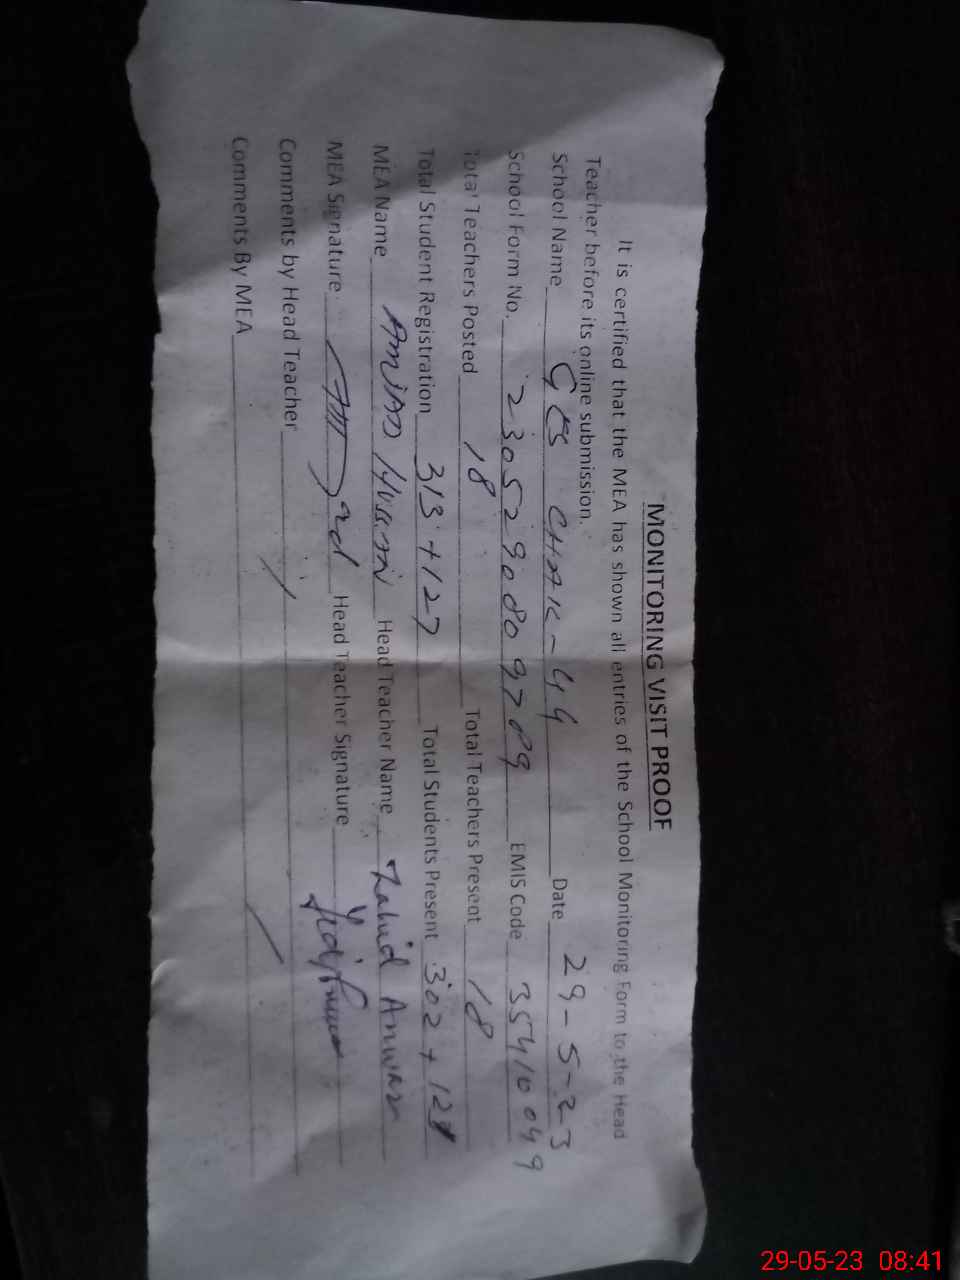 MONITORING VISIT PROOF
It is certified that the MEA has shown all entries of the School Monitoring Form to the Head
Teacher before its online submission.
School Name CHAK-44 Date 29-5-23
School Form No. 230529080809789 EMIS Code 35410049
Total Teachers Posted 18 Total Teachers Present 18
Total Student Registration 313+127 Total Students Present 302+12
MEA Name AMJAD Hussain Head Teacher Name Zahid Anwar
MEA Signature Head Teacher Signature
Comments by Head Teacher
Comments By MEA
29-05-23 08:41